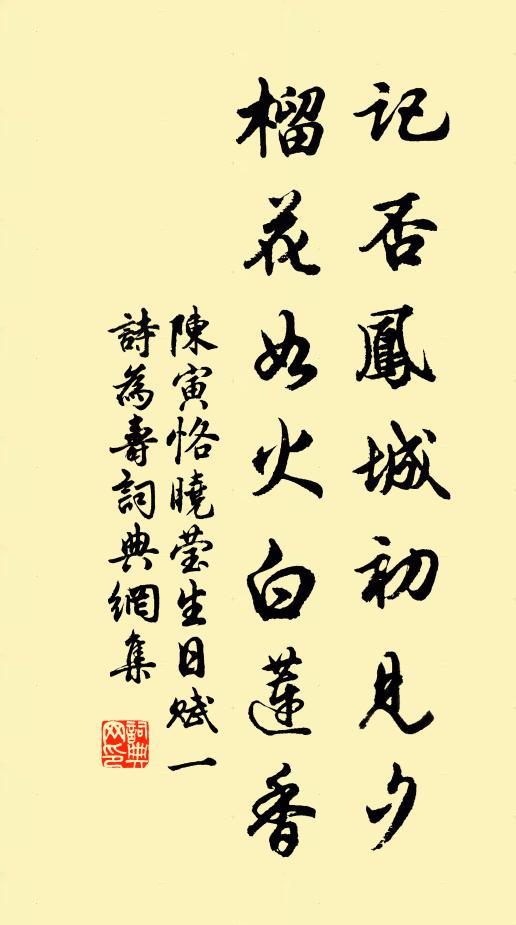 記否鳳城初見夕
榴花如火白蓮香
陳寅恪曉瑩生日賦一
詩為壽詞典網集
詞典網印